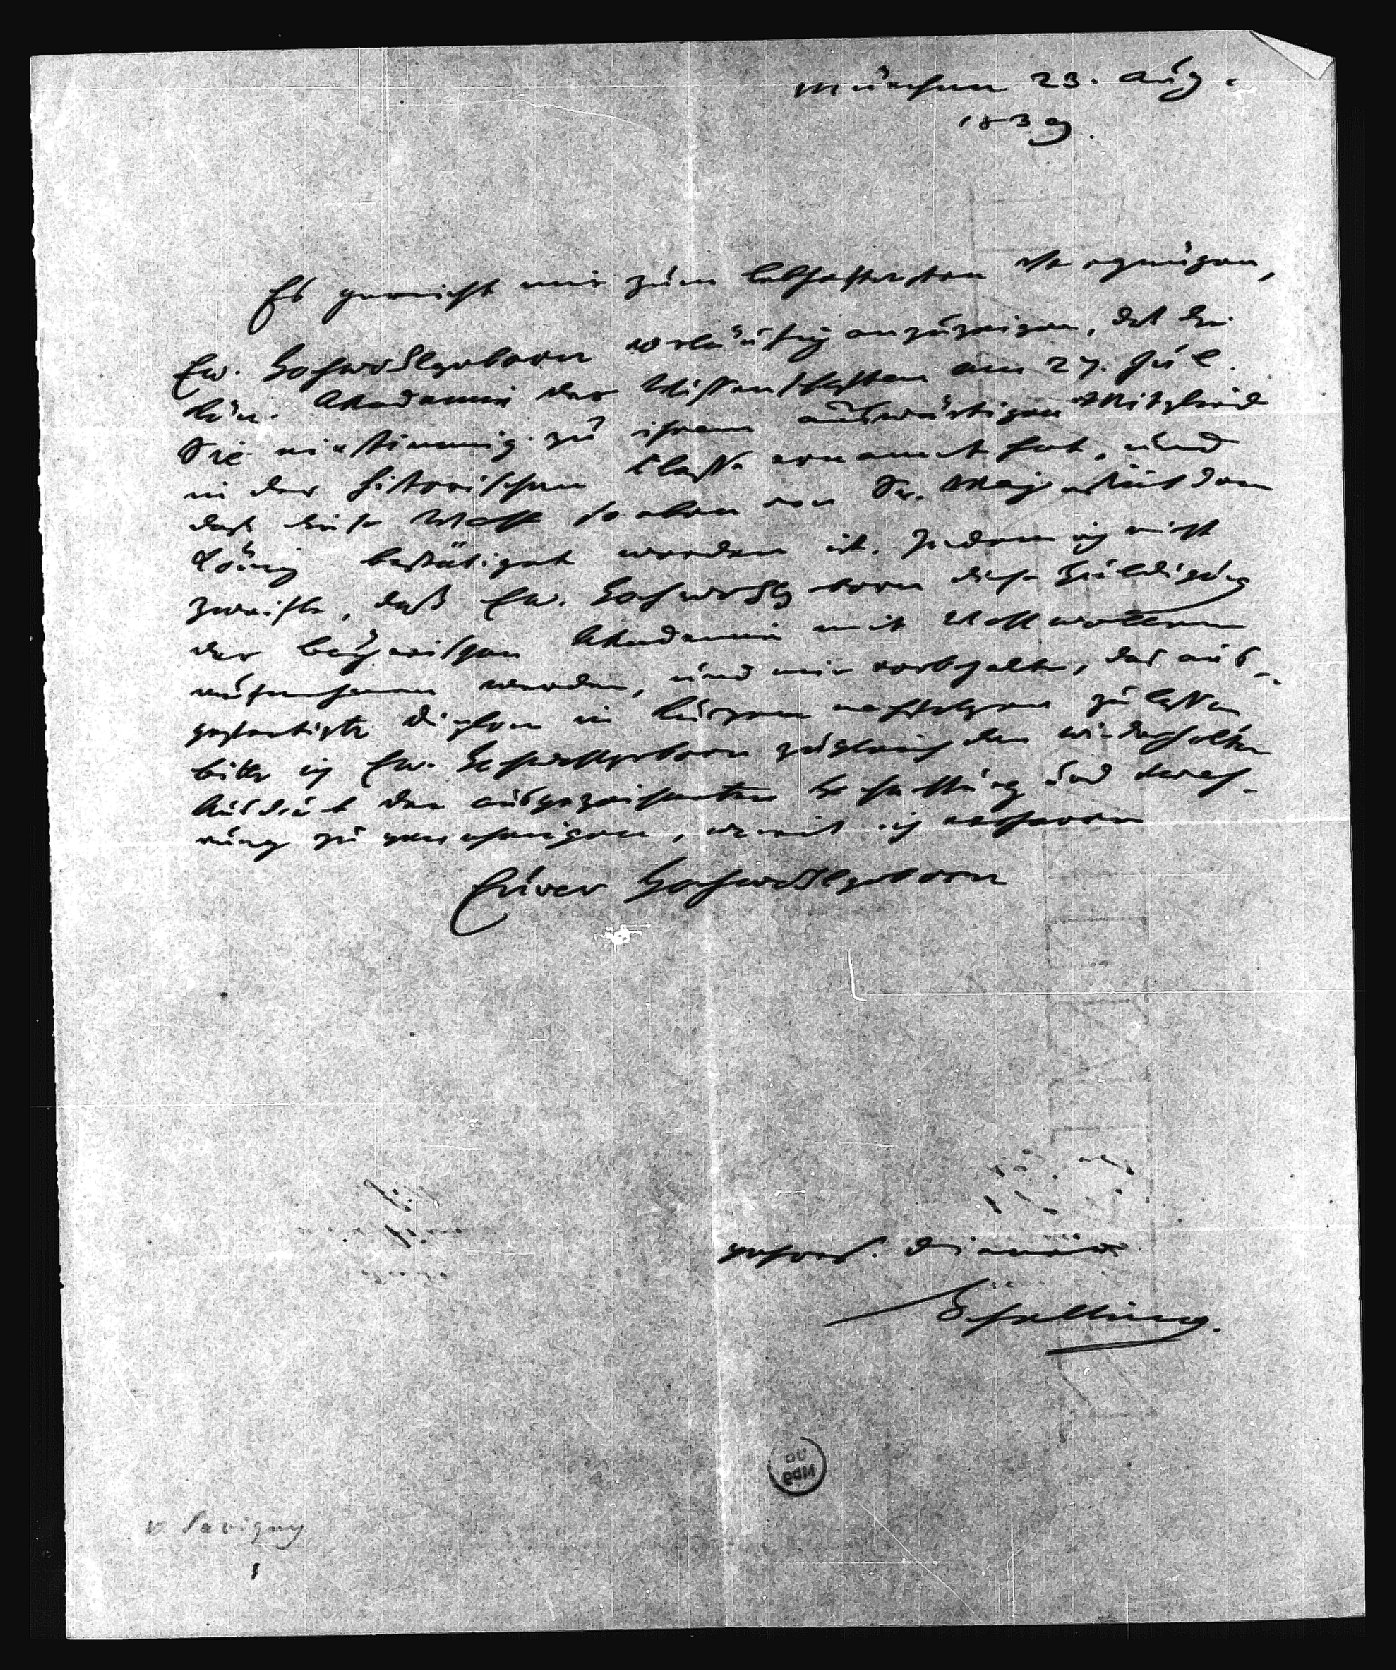 München 23. Aug.
1839.
Es gereicht mir zum lebhaftesten Vergnügen,
Ew. Hochwohlgeboren vorläufig anzuzeigen, daß die
kön. Akademie der Wissenschaften am 27. Jul.
Sie einstimmig zu ihrem auswärtigen Mitglied
in der historischen Classe ernannt hat, und
daß diese Wahl so eben von Sr. Majestät dem
König bestätiget worden ist. Indem ich nicht
zweifle, daß Ew. Hochwohlgeboren diese Huldigung
der bayerischen Akademie mit Wohlwollen
aufnehmen werden, und mir vorbehalte, das aus-
gefertigte Diplom in kurzem nachfolgen zu lassen
bitte ich Ew. Hochwohlgeboren zugleich den wiederholten
Ausdruck der ausgezeichneten Hochachtung und Vereh-
rung zu genehmigen, womit ich verharre
Eurer Hochwohlgeboren
gehors. Diener
Schelling.
v Savigny